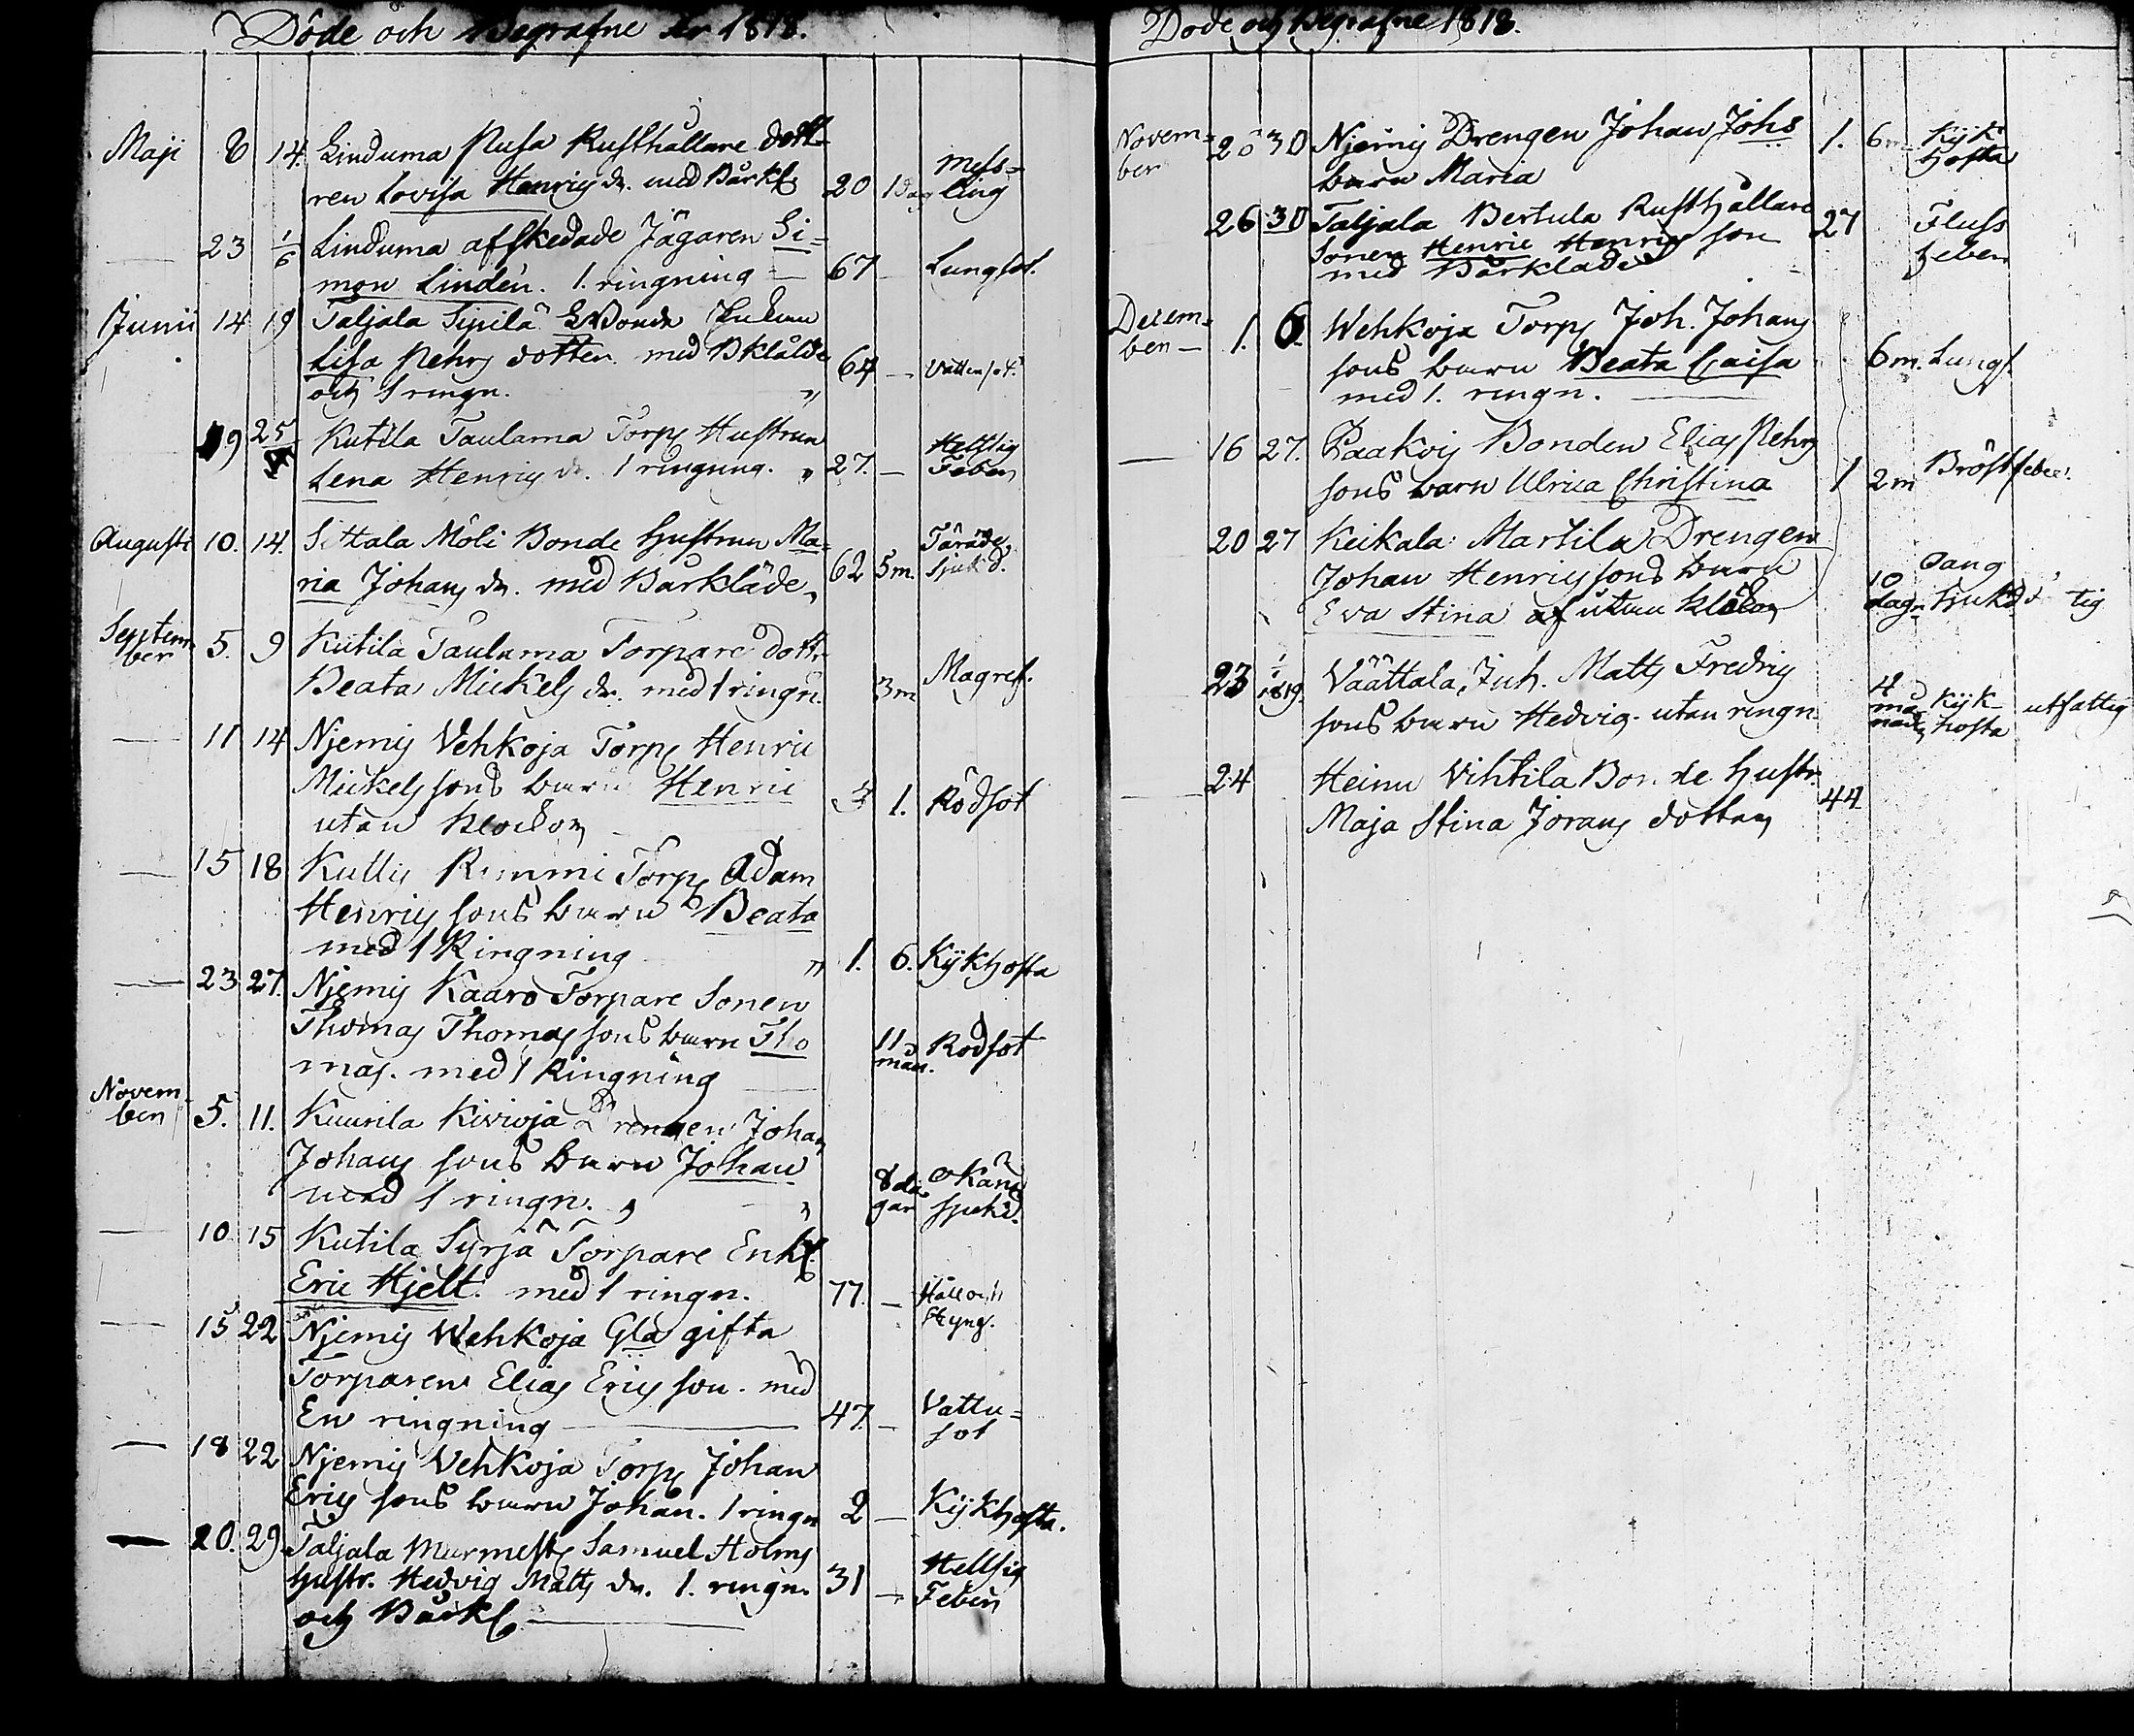 Döde och Begrafne år 1818.
Maji 8 14. Linduma Pusa Rusthållare dott-
ren Lovisa Henrics dr. med Bårkl 20 1 dag Mess=ling
23 1/6 Linduma afskedade Jägaren Si=
mon Lindén. 1. ringning 67 Lungsot.
Junii 14 19 Taljala Sipilä Bonde
Lisa Pehrs dotter med Bklåde 64 Vattensot.
och 1 ringn.
19 25 Kutila Taulama Torp Hustrun
Lena Henrics dr. 1 ringning. 27. Hettsig Feber
Augusti 10. 14. Sittala Möli Bonde Hustrun Ma=
ria Johans dr. med Bårkläde 62 5m. Tärande Sjukd.
Septem
ber 5. 9 Kutila Taulama Torpare dottr
Beata Mickels dr. med 1 ringn. 3m Magref.
11 14 Njemis Vehkoja Torp Henric
Mickels sons barn Henric 1. Rödsot
utan klockor
15 18 Kullis Torp Adam
Henrics sons barn Beata
med 1 Ringning 1. 6. Kykhosta
23 27. Njemis Kaaro Torpare Sonen
Thomas Thomas sons barn Tho
mas. med 1 Ringning 11 mån. Rödsot
Novem-
ber 5. 11. Kuurila Kivioja Drengen Johan
Johans sons barn Johan
med 1 ringn. 8 da gar okänd sjukd.
10 15 Kutila Syrjä Torpare Enkl.
Eric Hjelt. med 1 ringn. 77. Håll och Styng.
15 22 Njemis Wehkoja Gla gifta
Torparen Elias Erics son. med
En ringning 47. Vattu=sot
18 22 Njemis Vehkoja Torp Johan
Erics sons barn Johan. 1 ringn 2 Kykhosta.
20. 29. Taljala Murmest Samuel Holms
hustr. Hedvig Matts dr. 1. ringn. 31 Hettsig Feber
och Bårkl
Döde och Begrafne 1818.
Novem=
ber 20 30 Njemis Drengen Johan Johs 1. 6m Kyk hosta
barn Maria
26 30 Taljala Bertula Rusthållare 27 Fluss feber
Sonen Henric Henrics son
med Bårkläde
Decem=
ber 1. 6. Wehkoja Torp Joh. Johans
sons barn Beata Caisa 6m. Lungs.
med 1. ringn.
16 27. Paakois Bonden Elias Pehrs
sons barn Ulrica Christina 1 2m Bröstfeber.
20 27 Keikala Martila Drengen
Johan Henrics sons barn
Eva Stina af utan klockor 10 dagr Sjukd. tig
23 1/1 1819. Väättala, Inh. Matts Fredrics
sons barn Hedvig. utan ringn. 4 må nadr Kyk hosta utfattig
24 Heinu Vihtila Bonde hustr.
Maja Stina Jörans dotter 44